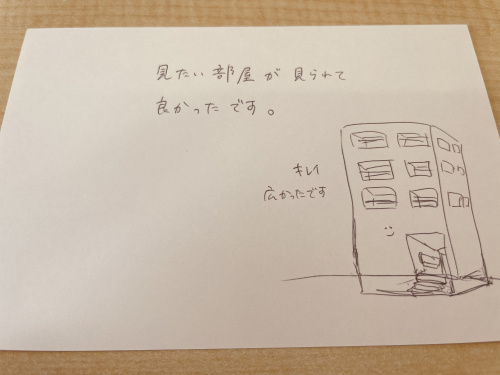 見たい部屋が見られて
良かったです。
キレイ
広かったです